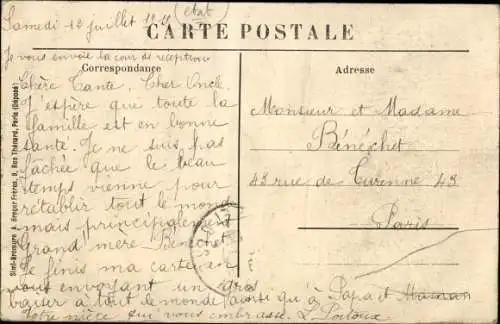 Samedi 12 juillet
(état)
CARTE POSTALE
Je vous envoie la cour de réception
Correspondance
Chère Tante, Cher Oncle,
J'espère que toute la
famille est en bonne
santé. Je ne suis pas
fâchée que le beau
temps vienne pour
rétablir tout le monde
mais principalement
Grand mère Bénéchet
Je finis ma carte en
vous envoyant un gros
baiser à tout le monde ainsi qu'à Papa et Maman
Votre nièce qui vous embrasse. L.
Adresse
Monsieur et Madame
Bénéchet
43 rue de Turenne 43
Paris
Simi-Bromure A. Breger Frères, 9, Rue Thénard, Paris (Déposé)